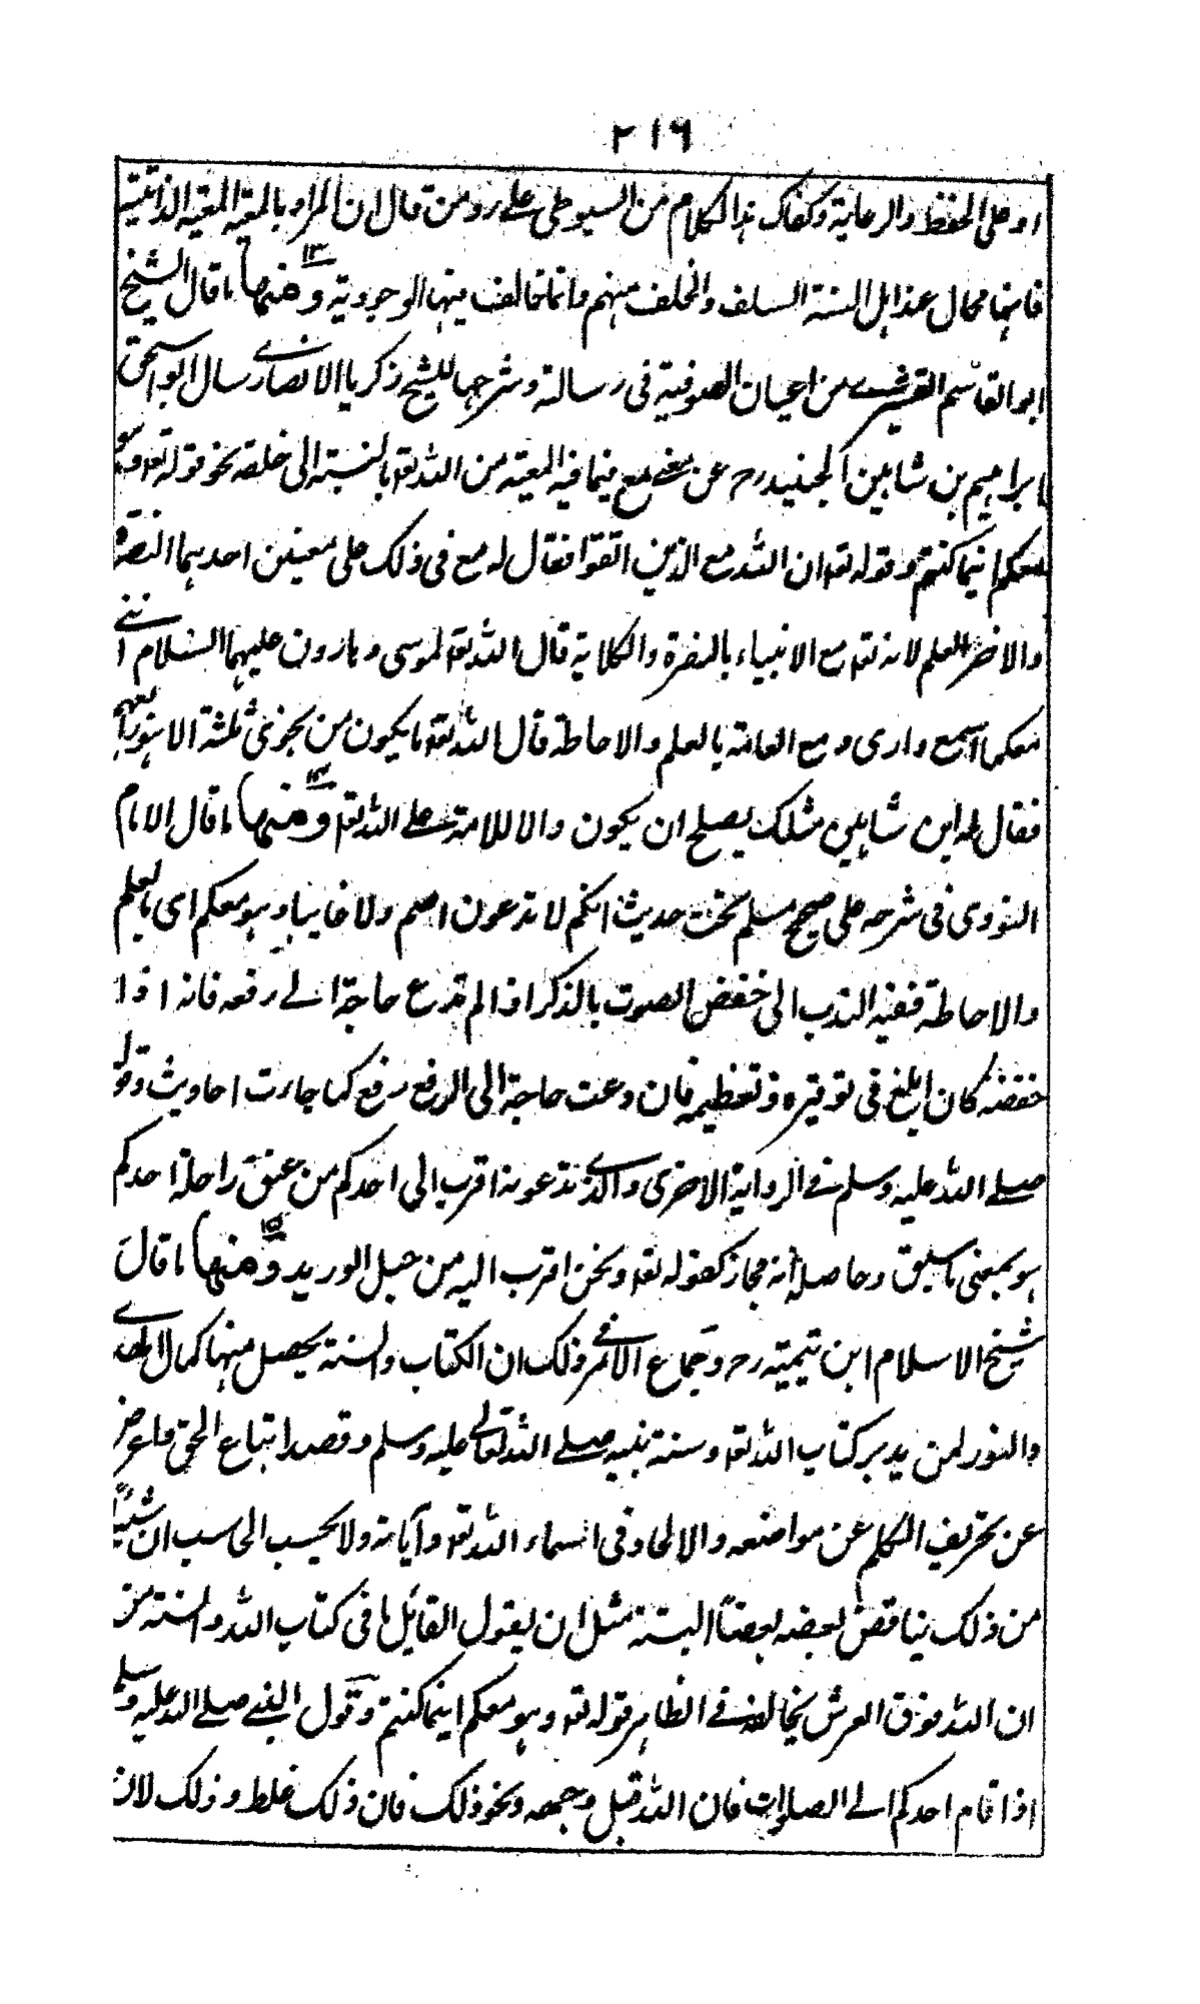 ۲۱۶
او على الحفظ والرعاية وكفاك هذا الكلام من السيوطى على رد من قال ان المراد بالمعية المعية الذاتية
فانها محال عند اهل السنة السلف والخلف منهم وانما خالف فيها الوجودية ومنها ۱۳ ما قال الشيخ
ابو القاسم القشيرى من اعيان الصوفية فى رسالة وشرحها للشيخ زكريا الانصارى سال ابو اسحق
ابراهيم بن شاهين الجنيد رح عن معنى مع فيما فيه المعية من الله تعا بالنسبة الى خلقه نحو قوله تعا وهو
معكم اينما كنتم وقوله تعا ان الله مع الذين اتقوا فقال له مع فى ذلك على معنيين احدهما النصرة
والاخر العلم لانه تعا مع الانبياء بالنصرة والكلاية قال الله تعا لموسى وهارون عليهما السلام اننى
معكما اسمع وارى ومع العامة بالعلم والاحاطة قال الله تعا ما يكون من نجوى ثلثة الا هو رابعهم
فقال له ابن شاهين مثلك يصلح ان يكون دالا للامة على الله تعا ومنها ۱۴ ما قال الامام
النووى فى شرحه على صحيح مسلم تحت حديث انكم لا تدعون اصم ولا غايبا وهو معكم اى بالعلم
والاحاطة ففيه الندب الى خفض الصوت بالذكر اذا لم تدع حاجة الى رفعه فانه اذا
خفضه كان ابلغ فى توقيره وتعظيمه فان دعت حاجة الى الرفع رفع كما جاءت احاديث وقوله
صلى الله عليه وسلم فى الرواية الاخرى والذى تدعونه اقرب الى احدكم من عنق راحلة احدكم
هو بمعنى ما سبق وحاصله انه مجاز كقوله تعا ونحن اقرب اليه من حبل الوريد ومنها ۱۵ ما قال
شيخ الاسلام ابن تيمية رح وجماع الامر فى ذلك ان الكتاب والسنة يحصل منها كمال الهدى
والنور لمن يدبر كتاب الله تعا وسنة نبيه صلى الله تعالى عليه وسلم وقصد اتباع الحق واعرض
عن تحريف الكلم عن مواضعه والالحاد فى اسماء الله تعا وآياته ولا يحسب الحاسب ان شيئا
من ذلك يناقض بعضه بعضاً البتة مثل ان يقول القايل ما فى كتاب الله والسنة من
ان الله فوق العرش يخالفه فى الظاهر قوله تعا وهو معكم اينما كنتم وقول النبى صلى الله عليه وسلم
اذا قام احدكم الى الصلوات فان الله قبل وجهه ونحو ذلك فان ذلك غلط وذلك لان